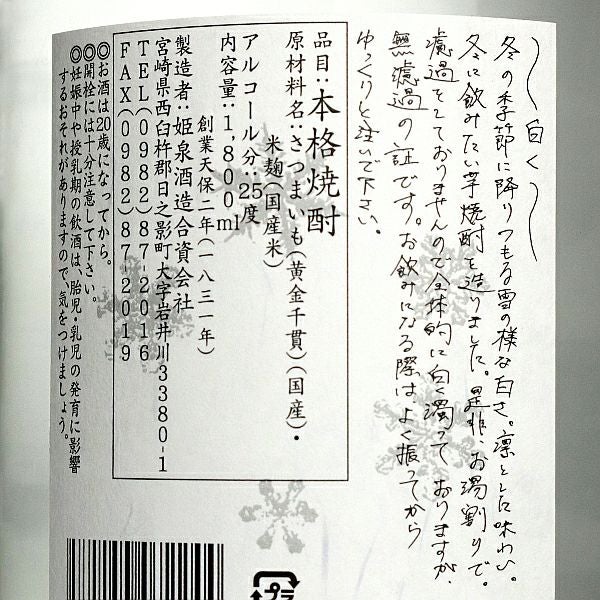 〜白く〜
冬の季節に降りつもる雪の様な白さ。凛とした味わい。
冬に飲みたい芋焼酎を造りました。是非、お湯割りで。
濾過をしておりませんので全体的に白く濁っておりますが、
無濾過の証です。お飲みになる際は、よく振ってから
ゆっくりと注いで下さい。
品目:本格焼酎
原材料名:さつまいも(黄金千貫)(国産)・
米麹(国産米)
アルコール分:25度
内容量:1,800ml
創業天保二年(一八三一年)
製造者:姫泉酒造合資会社
宮崎県西臼杵郡日之影町大字岩井川3380-1
TEL(0982)87-2016
FAX(0982)87-2019
◎お酒は20歳になってから。
◎開栓には十分注意して下さい。
◎妊娠中や授乳期の飲酒は、胎児・乳児の発育に影響
するおそれがありますので、気をつけましょう。
プラ